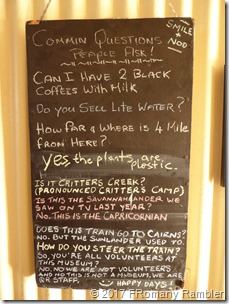 SMILE
+
NOD
COMMIN QUESTIONS
PEAPLE ASK!
CAN I HAVE 2 BLACK
COFFEES WITH MILK
DO YOU SELL LITE WATER?
HOW FAR & WHERE IS 4 MILE
FROM HERE?
yes, the plants are
plestic.
IS IT CRITTERS CREEK?
(PRONOUNCED CRITTERS CAMP)
IS THIS THE SAVANNAHLANDER WE
SAW ON TV LAST YEAR?
NO. THIS IS THE CAPRICORNIAN
DOES THIS TRAIN GO TO CAIRNS?
NO. BUT THE SUNLANDER USED TO.
HOW DO YOU STEER THE TRAIN?
SO, YOU'RE ALL VOLUNTEERS AT
THIS MUSEUM?
NO. NO WE ARE NOT VOLUNTEERS
AND NO THIS IS NOT A MUSEUM, WE ARE
QR STAFF.
HAPPY DAYS!
©2017 FRomany Rambler